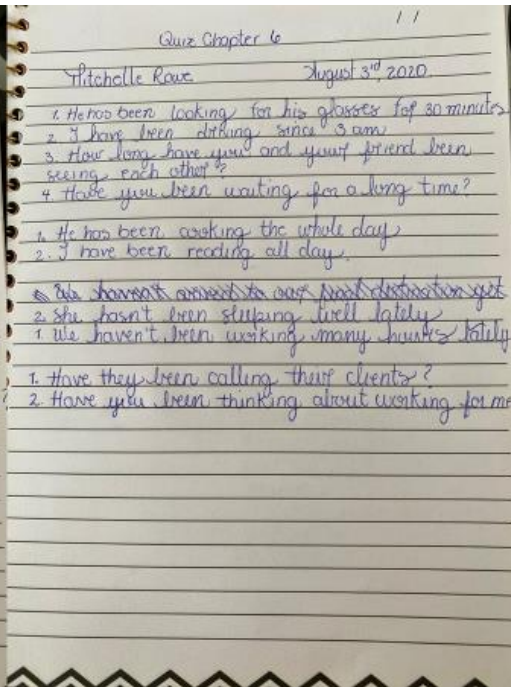 / /
Quiz Chapter 6
August 3rd, 2020.
1. He has been looking for his glasses for 30 minutes
2. I have been driking since 3 am
3. How long have you and your friend been
seeing each other?
4. Have you been waiting for a long time?
1. He has been cooking the whole day
2. I have been reading all day.
2. She hasn't been sleeping well lately
1. We haven't been working many hours lately
1. Have they been calling their clients?
2. Have you been thinking about working for me